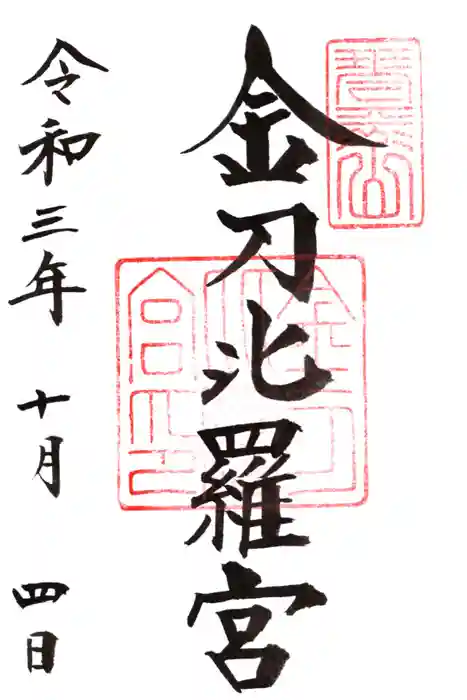 金刀比羅宮
令和三年 十月 四日